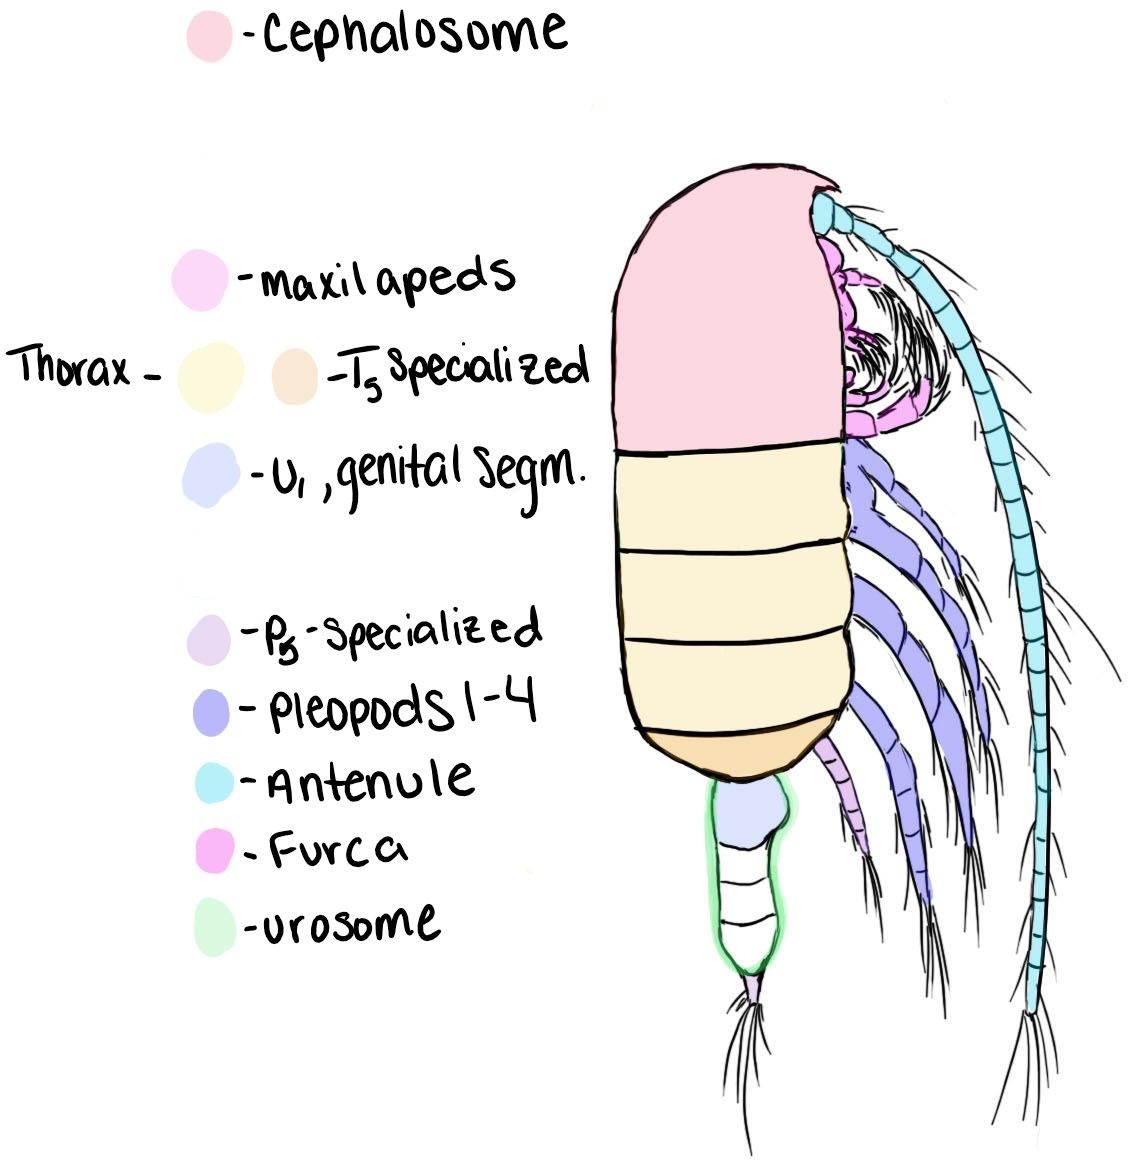 -Cephalosome
-maxilapeds
Thorax - -T5 Specialized
-U1, genital Segm.
-P5-specialized
-Pleopods 1-4
-Antenule
-Furca
-urosome